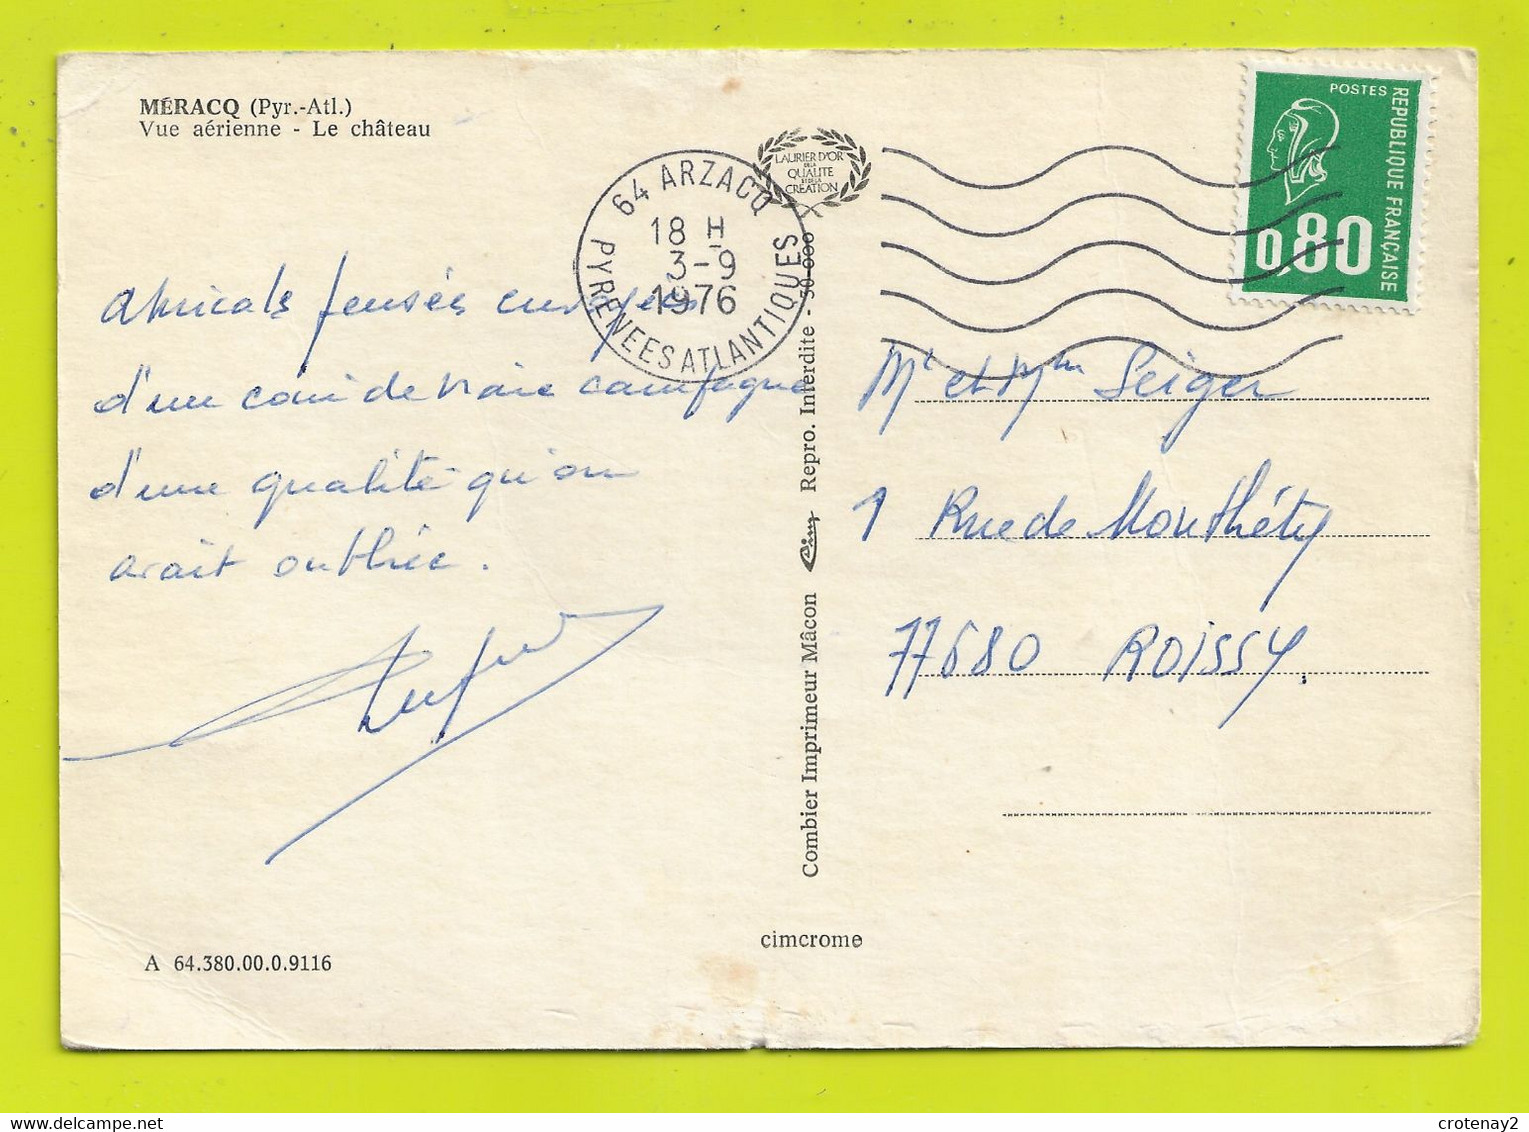 MÉRACQ (Pyr.-Atl.)
Vue aérienne - Le château
LAURIER D'OR
DE LA
QUALITE
ET DE LA
CREATION
64 ARZACQ
18 H
3-9
1976
PYRENEES ATLANTIQUES
POSTES
REPUBLIQUE FRANÇAISE
0,80
Amicals pensées
d'un coin de vraie campagne
d'une qualité qu'on
avait oubliée.
Mr et Mm Seiger
1 Rue de Monthéty
77680 ROISSY.
Combier Imprimeur Mâcon Cim Repro. Interdite - 50 000
cimcrome
A 64.380.00.0.9116
crotenay2